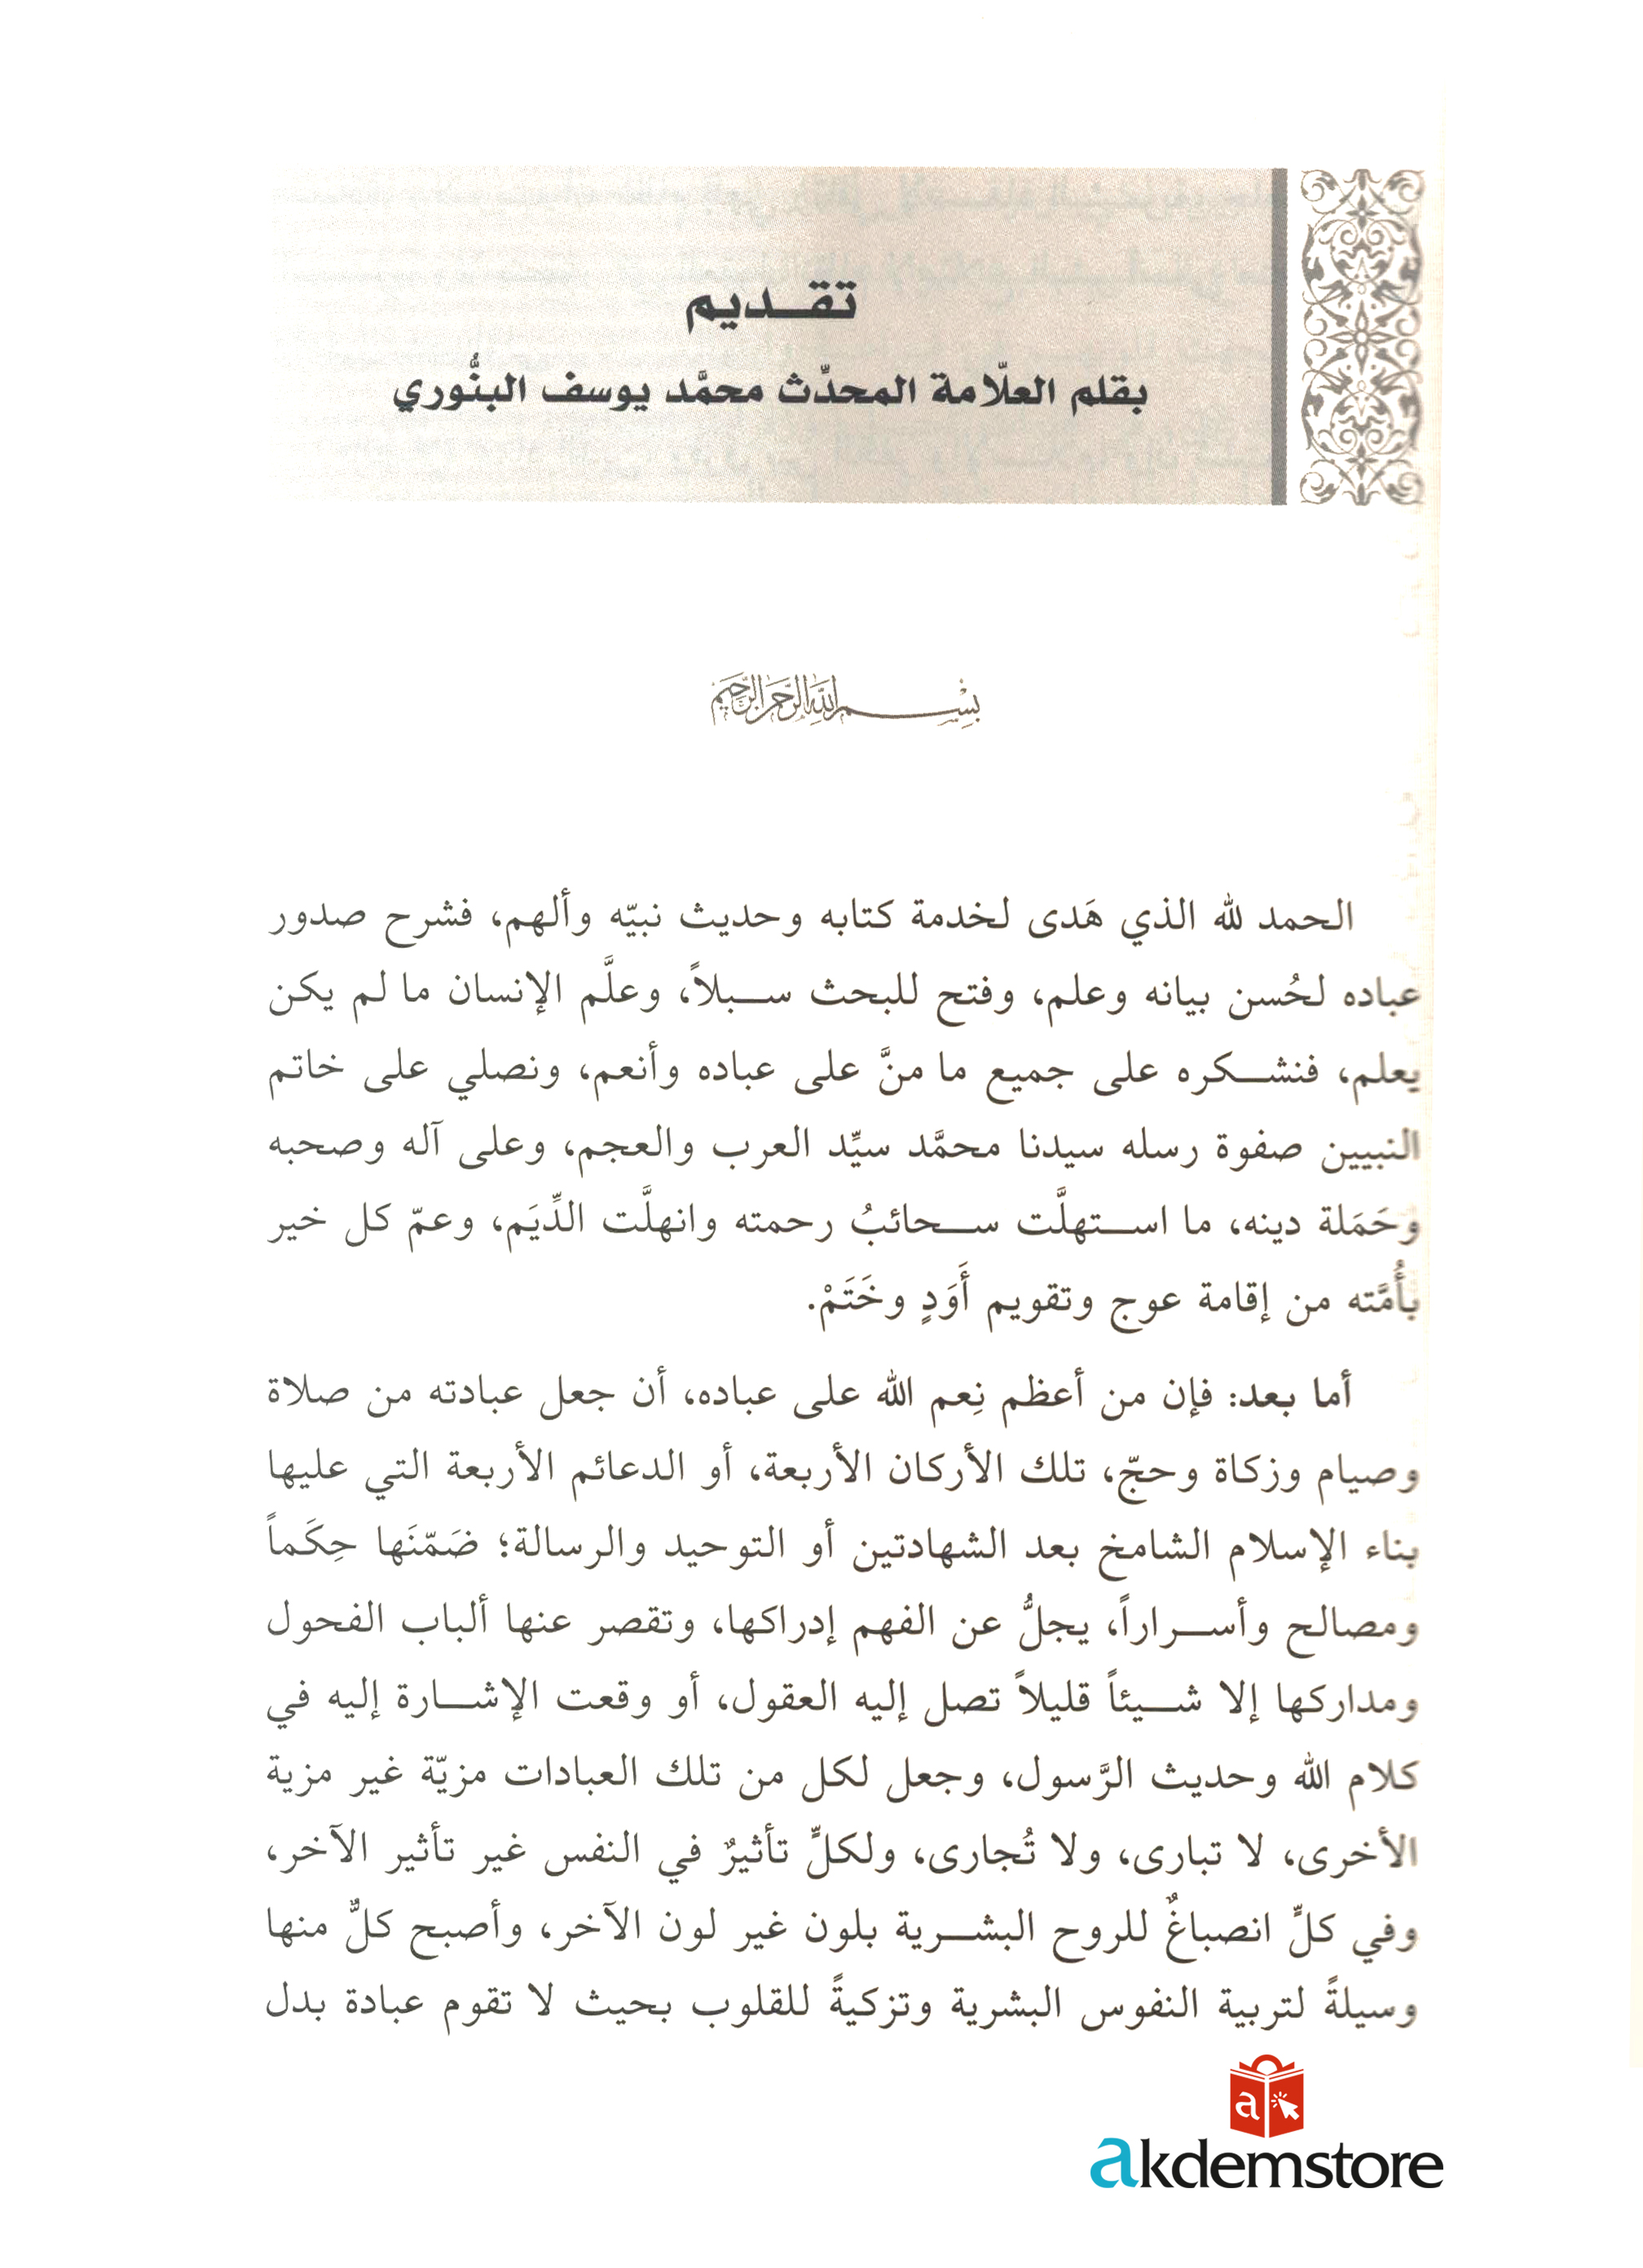 تقديم
بقلم العلّامة المحدِّث محمَّد يوسف البنُّوري
بِسْمِ اللَّهِ الرَّحْمَنِ الرَّحِيمِ
الحمد لله الذي هَدى لخدمة كتابه وحديث نبيّه وألهم، فشرح صدور
عباده لحُسن بيانه وعلم، وفتح للبحث سبلاً، وعلَّم الإنسان ما لم يكن
يعلم، فنشكره على جميع ما منَّ على عباده وأنعم، ونصلي على خاتم
النبيين صفوة رسله سيدنا محمَّد سيِّد العرب والعجم، وعلى آله وصحبه
وحَمَلة دينه، ما استهلَّت سحائبُ رحمته وانهلَّت الدِّيَم، وعمّ كل خير
بأُمَّته من إقامة عوج وتقويم أَوَدٍ وخَتَمْ.
أما بعد: فإن من أعظم نِعم الله على عباده، أن جعل عبادته من صلاة
وصيام وزكاة وحجّ، تلك الأركان الأربعة، أو الدعائم الأربعة التي عليها
بناء الإسلام الشامخ بعد الشهادتين أو التوحيد والرسالة؛ ضَمّنَها حِكَماً
ومصالح وأسراراً، يجلُّ عن الفهم إدراكها، وتقصر عنها ألباب الفحول
ومداركها إلا شيئاً قليلاً تصل إليه العقول، أو وقعت الإشارة إليه في
كلام الله وحديث الرَّسول، وجعل لكل من تلك العبادات مزيّة غير مزية
الأخرى، لا تبارى، ولا تُجارى، ولكلٍّ تأثيرٌ في النفس غير تأثير الآخر،
وفي كلٍّ انصباغٌ للروح البشرية بلون غير لون الآخر، وأصبح كلٌّ منها
وسيلةً لتربية النفوس البشرية وتزكيةً للقلوب بحيث لا تقوم عبادة بدل
a
akdemstore